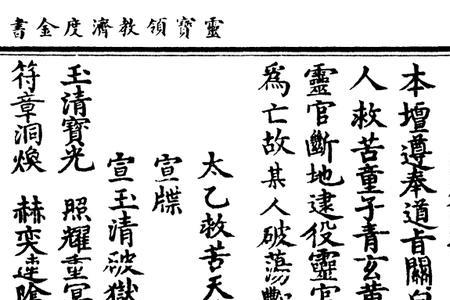 靈寶領教濟度金書
本壇遵奉道旨關
人救苦童子青玄
靈官斷地逮役靈官
為亡故某人破蕩
太乙救苦天
宣牒
宣玉清破獄
玉清寶光 照耀重冥
符章洞煥 赫奕達陰